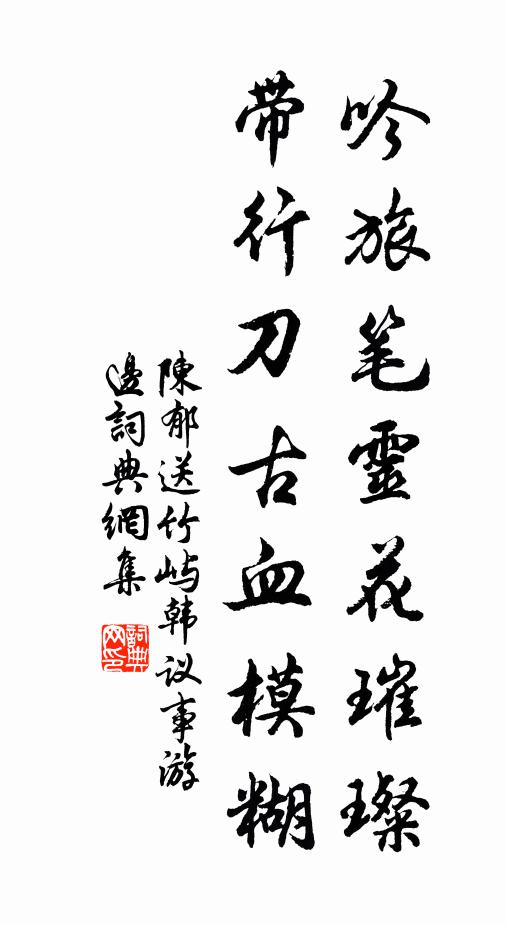 吟旅笔靈花璀璨
带行刀古血模糊
陳郁送竹屿韩议事游
邊詞典網集
詞典
网印